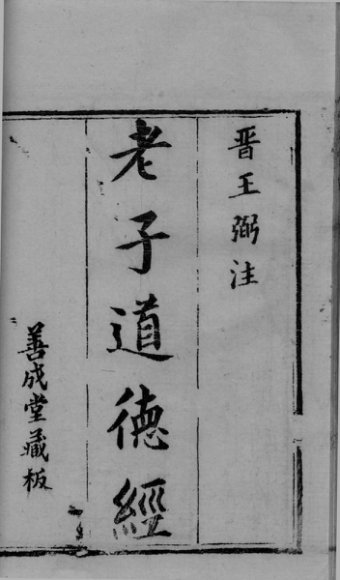 晋王弼注
老子道德經
善成堂藏板